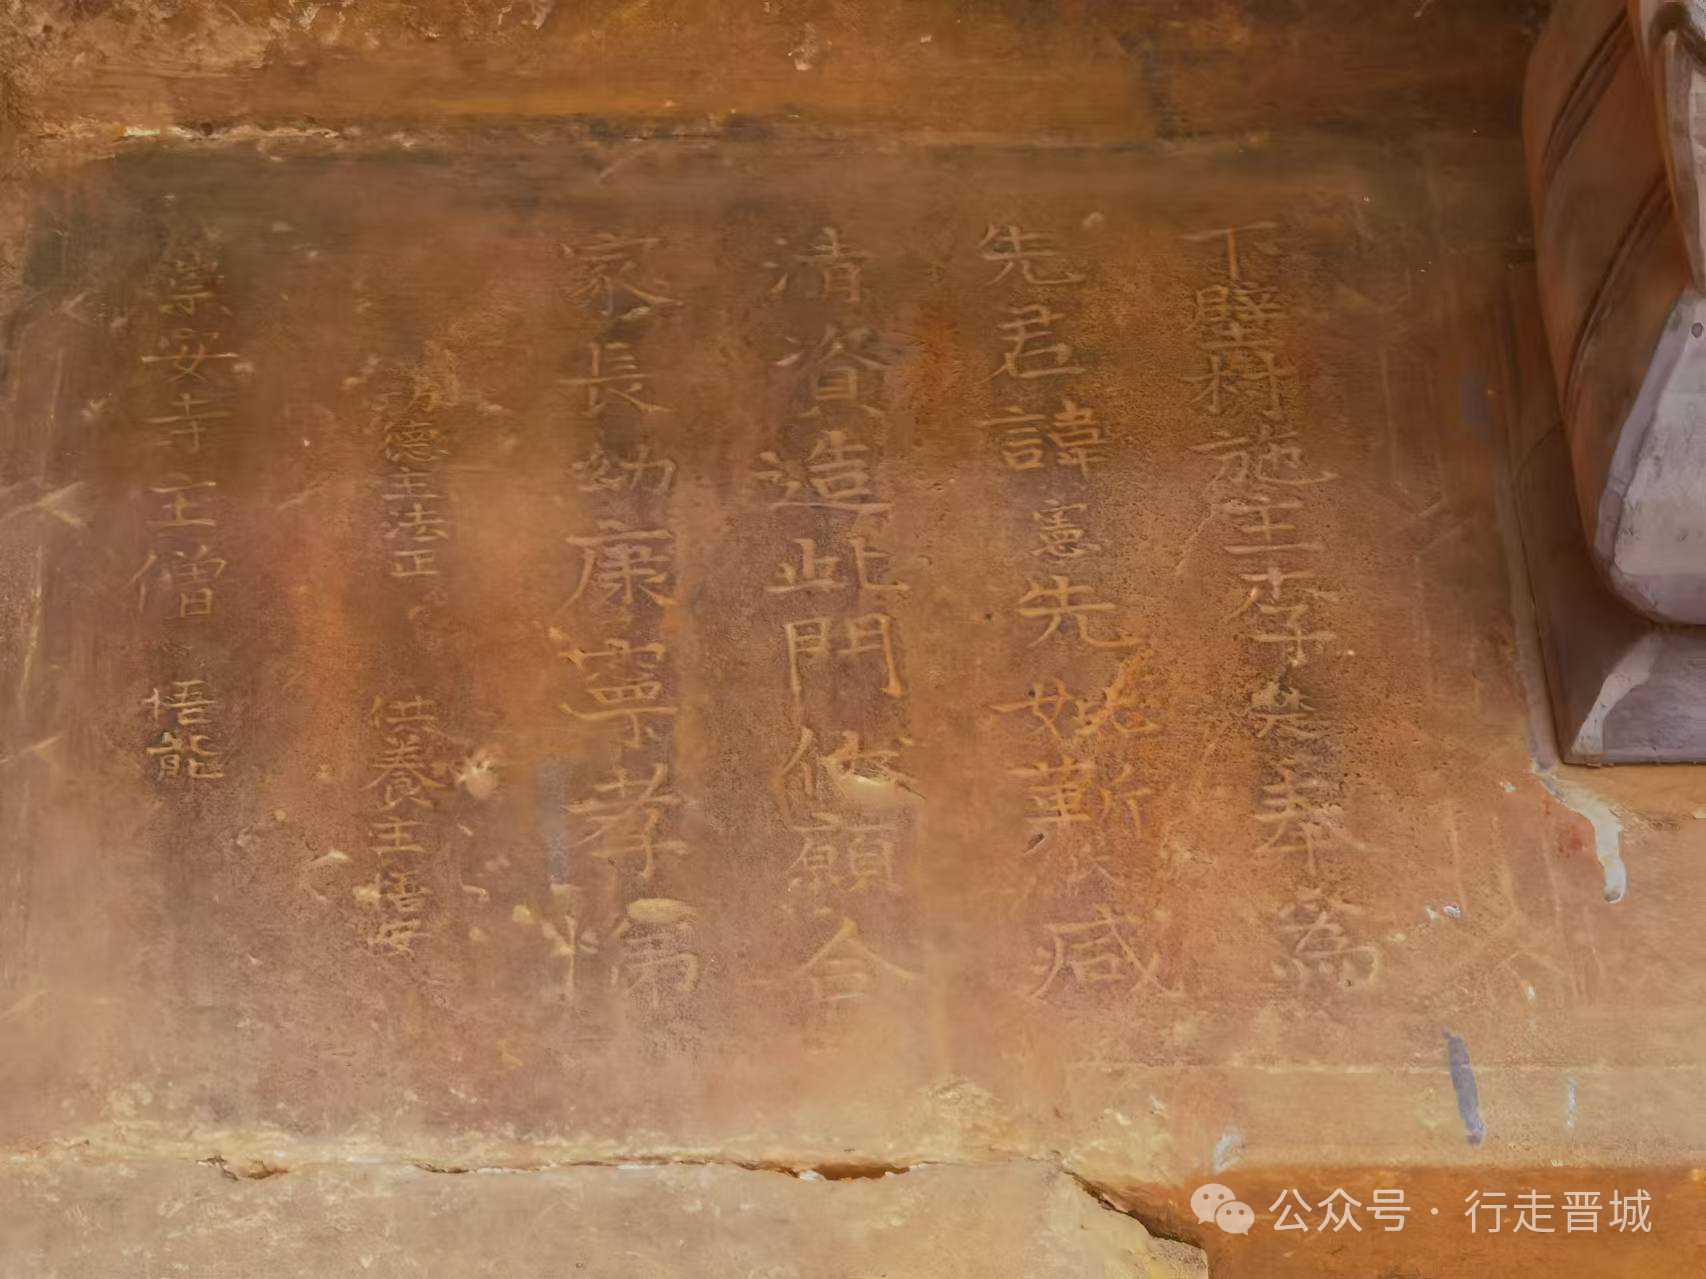 下壁村施主李奘奉為
先君諱憲先妣靳氏咸
清資造此門代願合
家長幼康寧孝悌
功德主法正 供養主悟安
崇安寺主僧 悟能
公众号·行走晋城